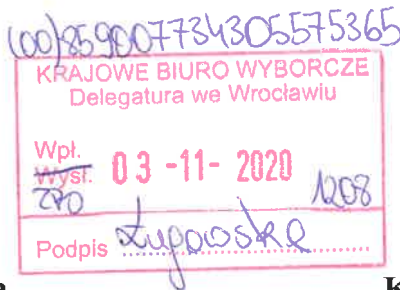 (00)859007734305575365
KRAJOWE BIURO WYBORCZE
Delegatura we Wrocławiu
Wpł.
Wysł. 03 -11- 2020
270 1208
Podpis